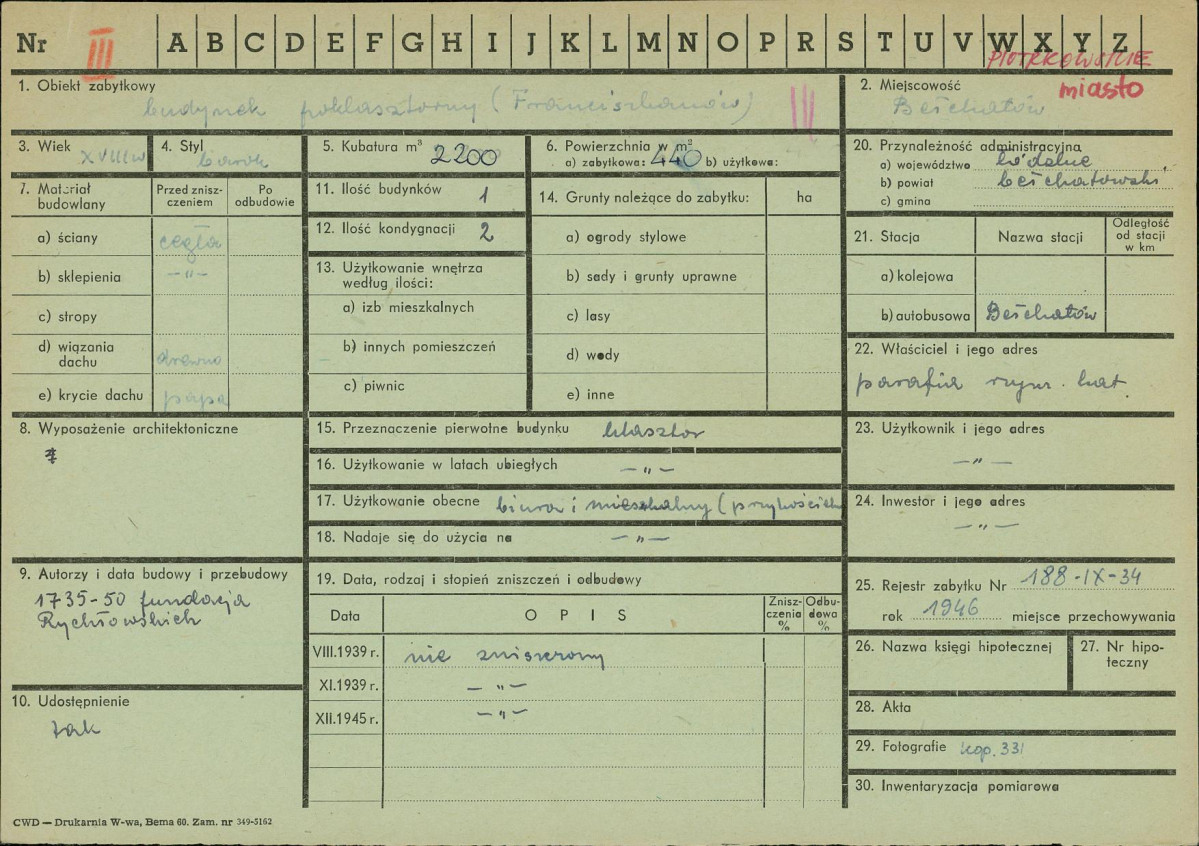 Nr III A B C D E F G H I J K L M N O P R S T U V W X Y Z
PIOTRKOWSKIE
miasto
1. Obiekt zabytkowy
budynek poklasztorny (Franciszkanów) III
2. Miejscowość
Bełchatów
3. Wiek XVIII w
4. Styl barok
5. Kubatura m³ 2200
6. Powierzchnia w m²
a) zabytkowa: 440 b) użytkowa:
7. Materiał budowlany
Przed zniszczeniem
Po odbudowie
a) ściany cegła
b) sklepienia —„—
c) stropy
d) wiązania dachu drewno
e) krycie dachu papa
8. Wyposażenie architektoniczne
9. Autorzy i data budowy i przebudowy
1735-50 fundacja
Rychłowskich
10. Udostępnienie
tak
11. Ilość budynków 1
12. Ilość kondygnacji 2
13. Użytkowanie wnętrza
według ilości:
a) izb mieszkalnych
b) innych pomieszczeń
c) piwnic
14. Grunty należące do zabytku: ha
a) ogrody stylowe
b) sady i grunty uprawne
c) lasy
d) wody
e) inne
15. Przeznaczenie pierwotne budynku klasztor
16. Użytkowanie w latach ubiegłych —„—
17. Użytkowanie obecne biura i mieszkalny (przykościeln
18. Nadaje się do użycia na —„—
19. Data, rodzaj i stopień zniszczeń i odbudowy
Data
O P I S
Znisz-
czenia
%
Odbu-
dowa
%
VIII.1939 r. nie zniszczony
XI.1939 r. —„—
XII.1945 r. —„—
20. Przynależność administracyjna
a) województwo łódzkie
b) powiat bełchatowski
c) gmina
21. Stacja
Nazwa stacji
Odległość
od stacji
w km
a) kolejowa
b) autobusowa Bełchatów
22. Właściciel i jego adres
parafia rzym. kat.
23. Użytkownik i jego adres
—„—
24. Inwestor i jego adres
—„—
25. Rejestr zabytku Nr 188-IX-34
rok 1946 miejsce przechowywania
26. Nazwa księgi hipotecznej
27. Nr hipo-
teczny
28. Akta
29. Fotografie kop. 331
30. Inwentaryzacja pomiarowa
CWD — Drukarnia W-wa, Bema 60. Zam. nr 349-5162